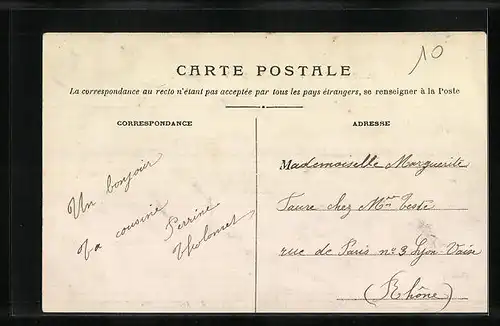 10
CARTE POSTALE
La correspondance au recto n'étant pas acceptée par tous les pays étrangers, se renseigner à la Poste
CORRESPONDANCE
Un bonjour
Ta cousine
Perrine
ADRESSE
Mademoiselle Marguerite
Faure chez Mme Teste
rue de Paris no 3 Lyon Vaise
(Rhône)